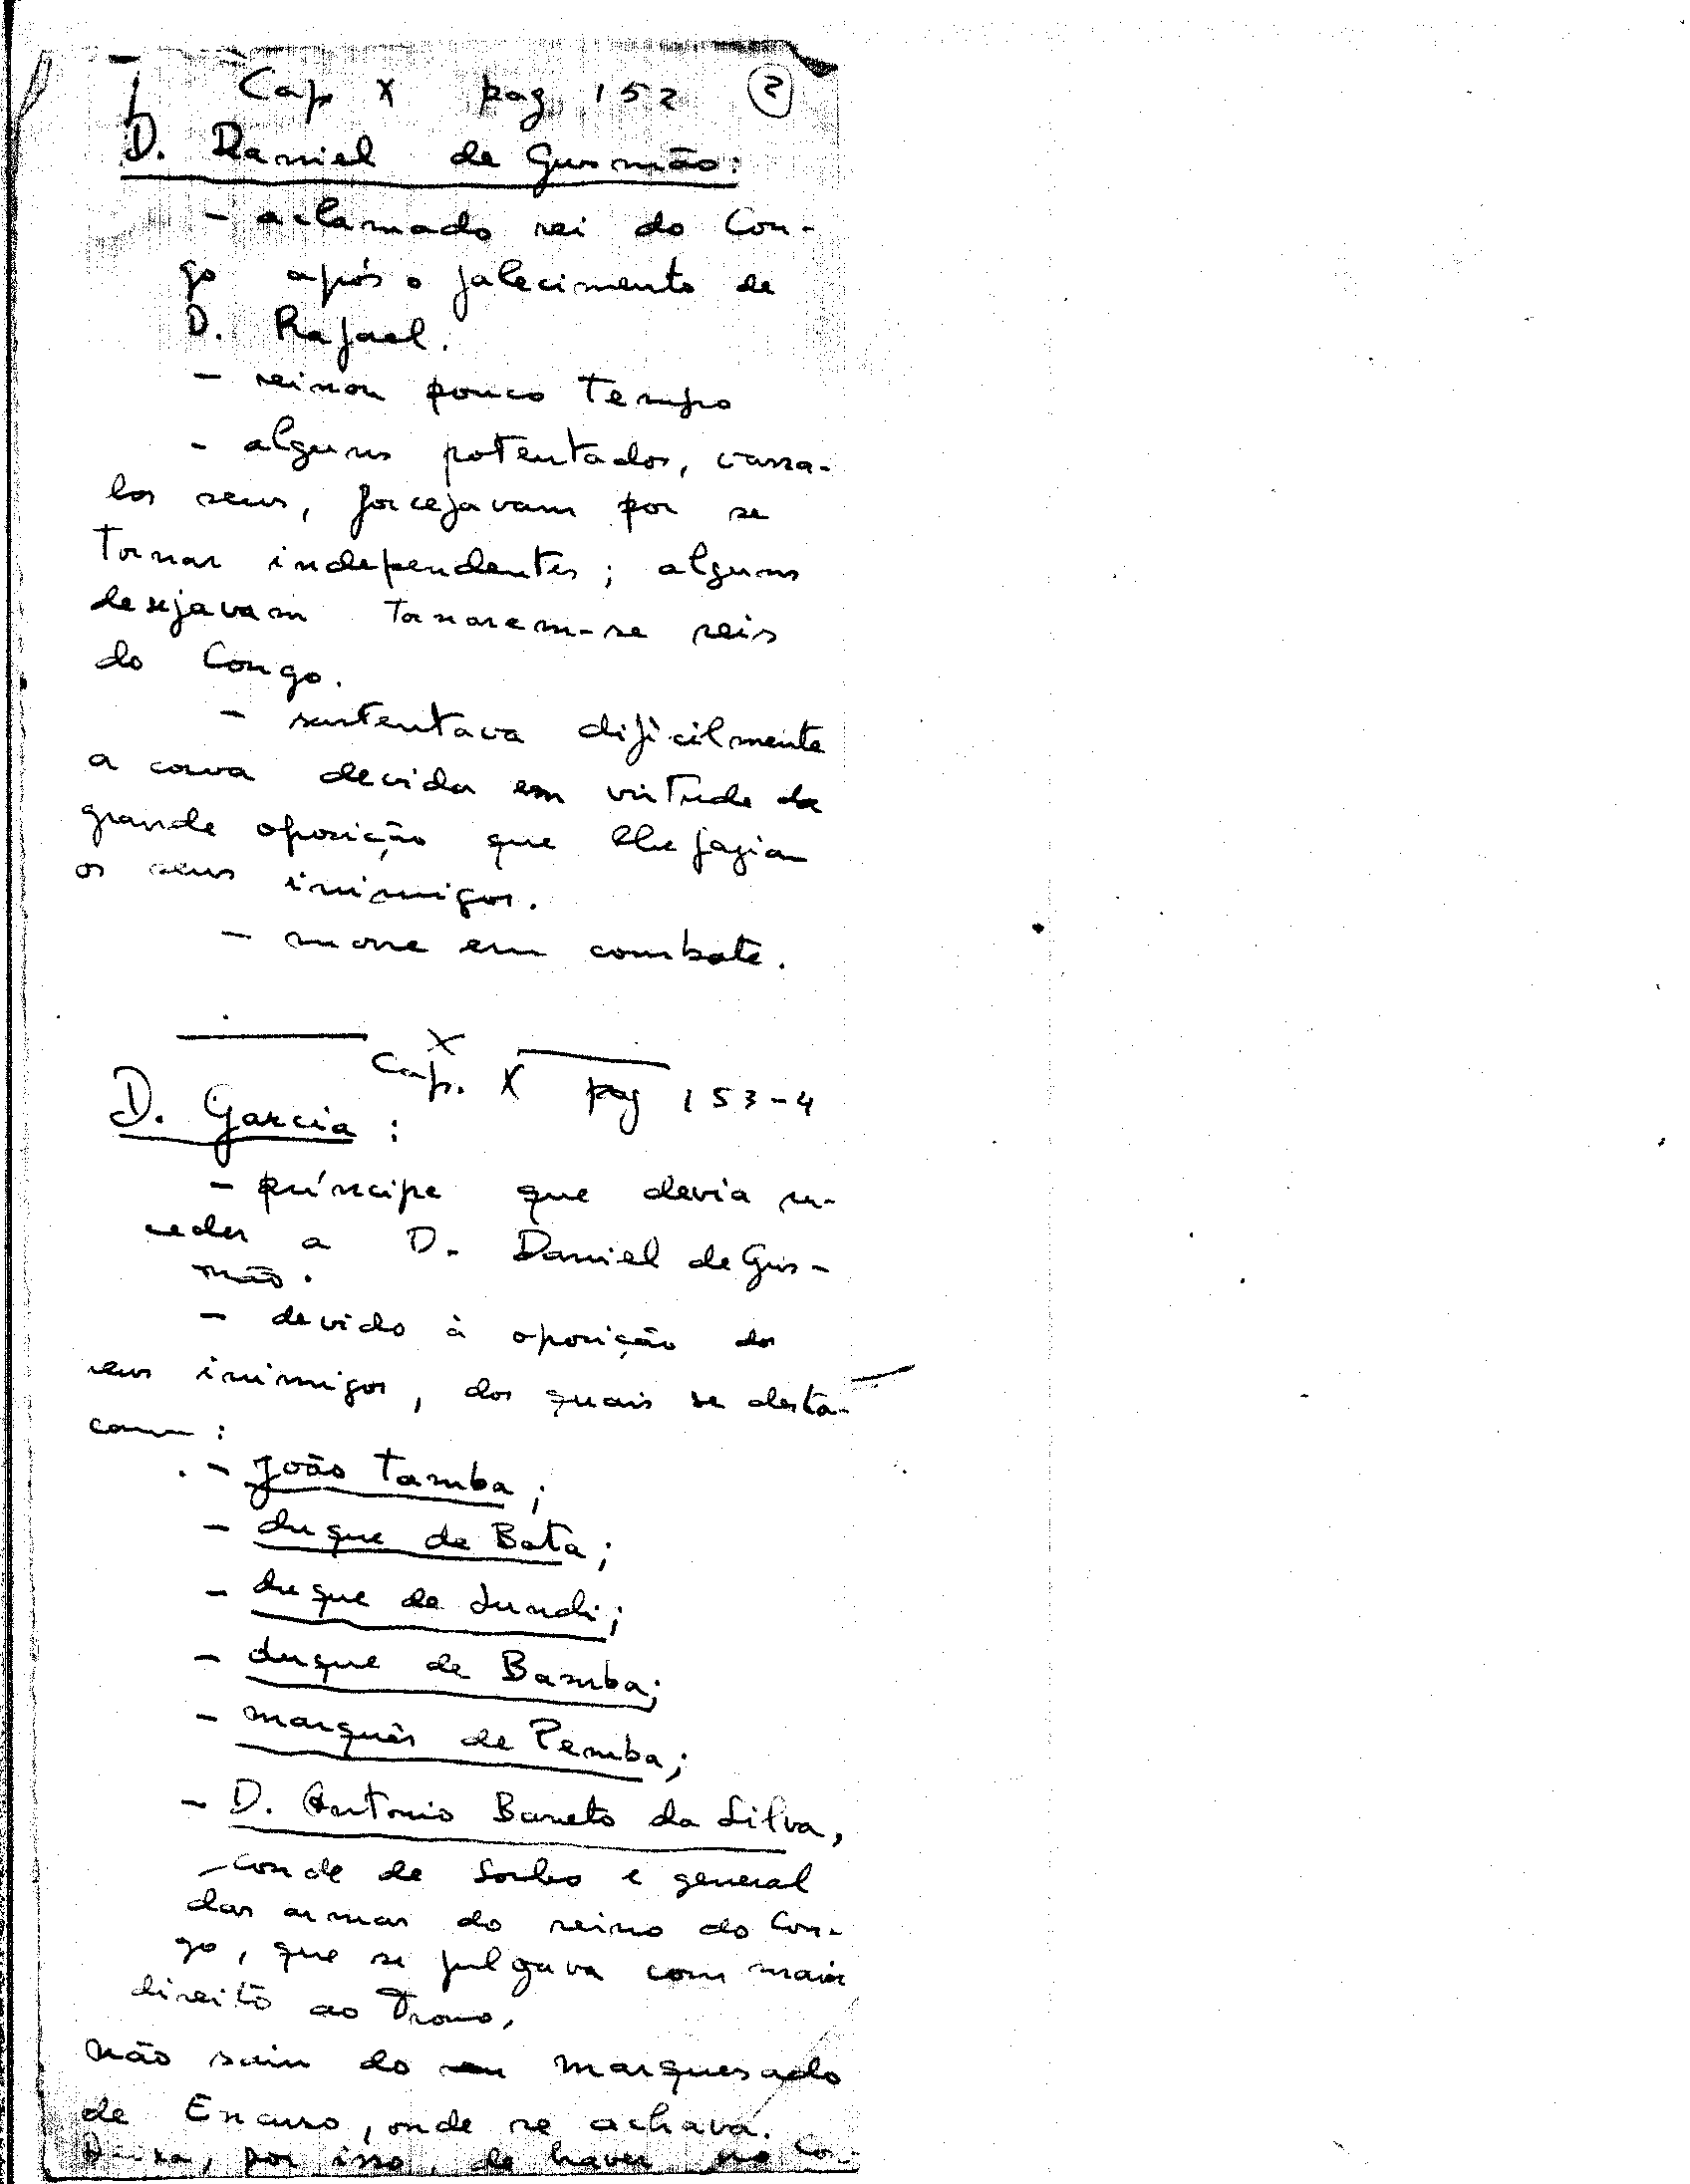 Cap X pag. 152 2
D. Daniel de Gusmão:
- aclamado rei do Con-
go após o falecimento de
D. Rafael.
- reinou pouco tempo
- alguns potentados, vassa-
los seus, forcejavam por se
tornar independentes; alguns
desejavam tornarem-se reis
do Congo.
- sustentava dificilmente
a coroa devida em virtude da
grande oposição que lhe faziam
os seus inimigos.
- morre em combate.
X
Cap. X pag 153-4
D. Garcia:
- príncipe que devia su-
ceder a D. Daniel de Gus-
mão.
- devido à oposição dos
seus inimigos, dos quais se desta-
cam:
- João Tamba;
- duque de Bata;
- duque de Sundi;
- duque de Bamba;
- marquês de Pemba;
- D. Antonio Barreto da Silva,
conde de Sonho e general
das armas do reino do Con-
go, que se julgava com maior
direito ao Trono,
não saiu do marquesado
de Encuso, onde se achava.
Deixa, por isso, de haver no Con-